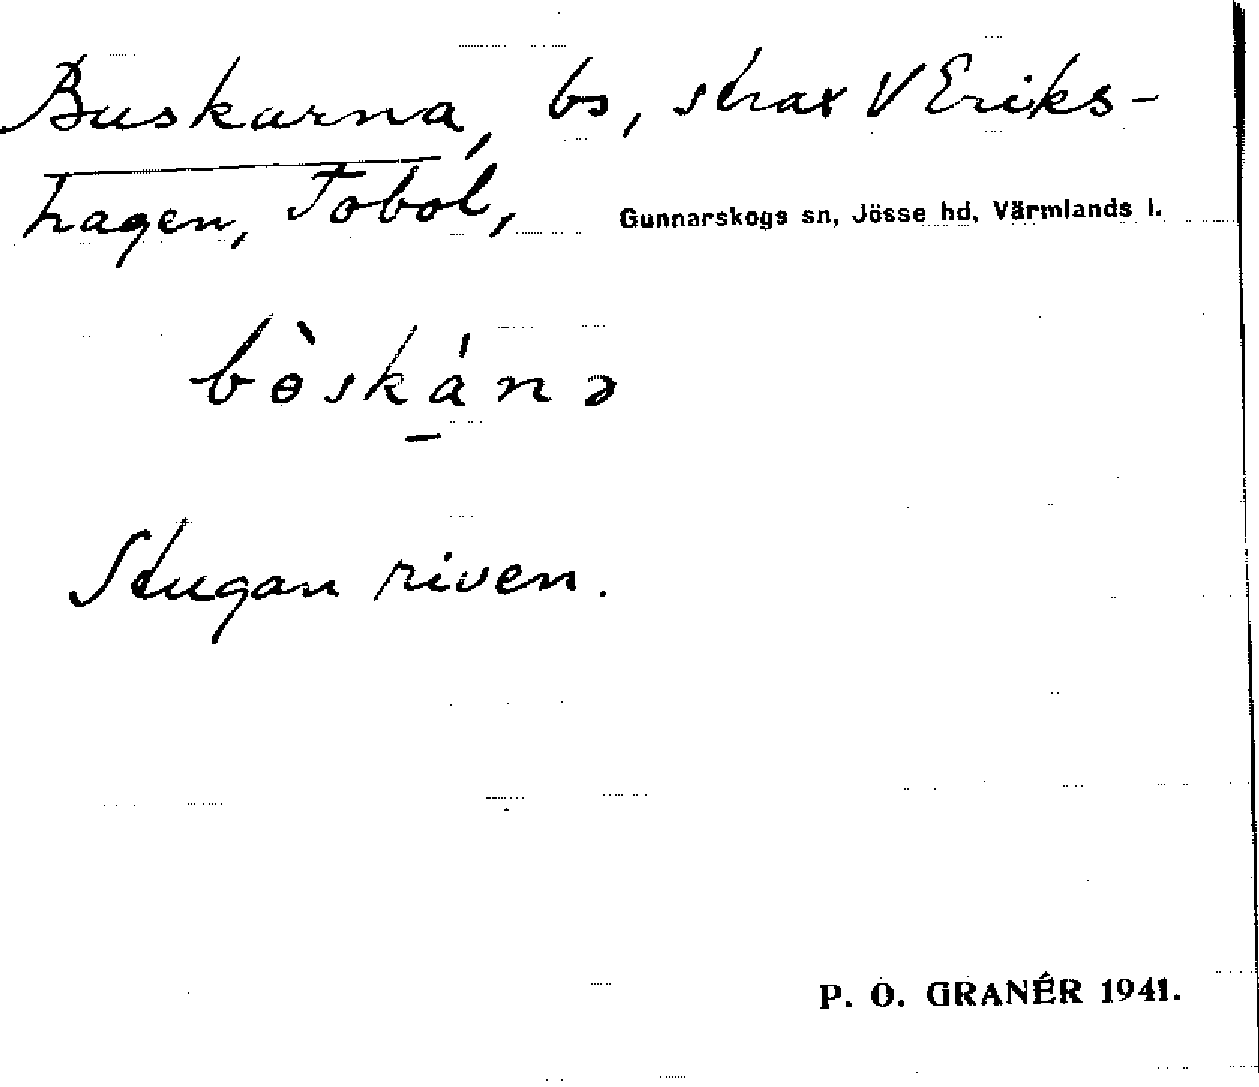 Buskarna, bs, strax V Eriks-
hagen, Tobol, Gunnarskogs sn, Jösse hd, Värmlands l.
bɵ̀skánə
Stugan riven.
P. O. GRANÉR 1941.